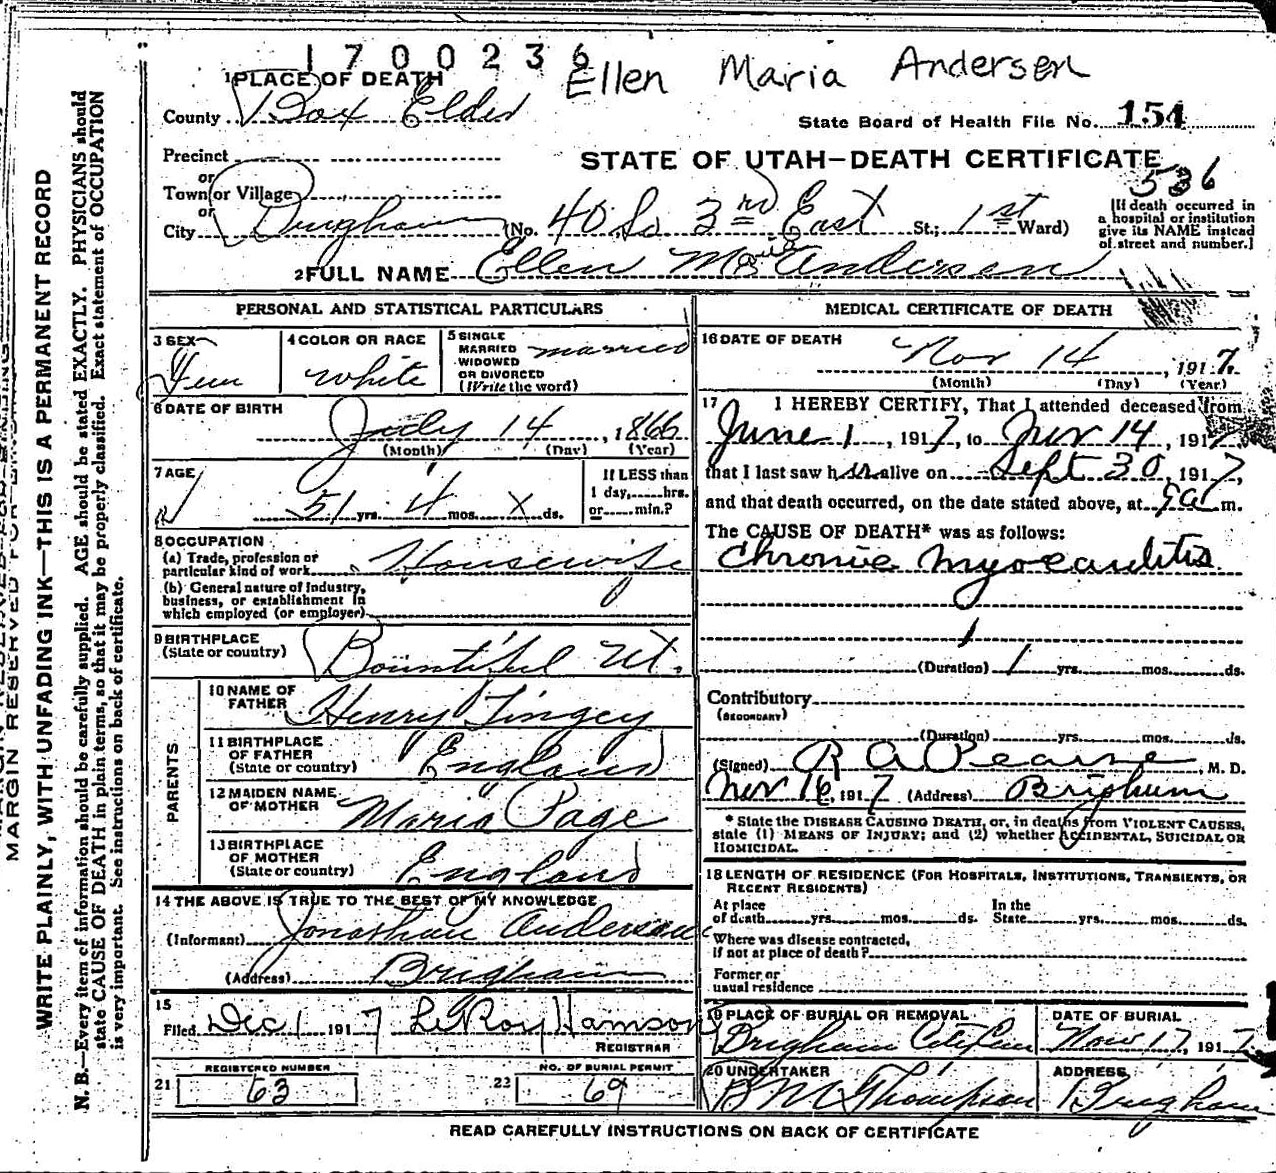 1700236
Ellen Maria Andersen
1 PLACE OF DEATH
County Box Elder
State Board of Health File No. 154
Precinct
or
Town or Village
or
City Brigham (No. 40 So 3rd East St.; 1st Ward)
STATE OF UTAH—DEATH CERTIFICATE
536
[If death occurred in
a hospital or institution
give its NAME instead
of street and number.]
2 FULL NAME Ellen Maria Andersen
PERSONAL AND STATISTICAL PARTICULARS
3 SEX
Fem
4 COLOR OR RACE
white
5 SINGLE
MARRIED
WIDOWED
OR DIVORCED
(Write the word)
married
6 DATE OF BIRTH
July 14, 1866
(Month) (Day) (Year)
7 AGE
51 yrs. 4 mos. X ds.
If LESS than
1 day, hrs.
or min.?
8 OCCUPATION
(a) Trade, profession or
particular kind of work Housewife
(b) General nature of industry,
business, or establishment in
which employed (or employer)
9 BIRTHPLACE
(State or country) Bountiful Ut.
PARENTS
10 NAME OF
FATHER Henry Tingey
11 BIRTHPLACE
OF FATHER
(State or country) England
12 MAIDEN NAME
OF MOTHER Maria Page
13 BIRTHPLACE
OF MOTHER
(State or country) England
14 THE ABOVE IS TRUE TO THE BEST OF MY KNOWLEDGE
(Informant) Jonathan Andersen
(Address) Brigham
15
Filed Dec 1 1917 LeRoy Hamson
REGISTRAR
REGISTERED NUMBER
21 63
NO. OF BURIAL PERMIT
23 69
MEDICAL CERTIFICATE OF DEATH
16 DATE OF DEATH
Nov 14, 1917.
(Month) (Day) (Year)
17 I HEREBY CERTIFY, That I attended deceased from
June 1, 1917, to Nov 14, 1917
that I last saw her alive on Sept 30, 1917,
and that death occurred, on the date stated above, at 9 a m.
The CAUSE OF DEATH* was as follows:
Chronic Myocarditis
1
(Duration) 1 yrs. mos. ds.
Contributory
(SECONDARY)
(Duration) yrs. mos. ds.
(Signed) R A Pearse, M. D.
Nov 16, 1917 (Address) Brigham
* State the DISEASE CAUSING DEATH, or, in deaths from VIOLENT CAUSES,
state (1) MEANS OF INJURY; and (2) whether ACCIDENTAL, SUICIDAL OR
HOMICIDAL.
18 LENGTH OF RESIDENCE (FOR HOSPITALS, INSTITUTIONS, TRANSIENTS, OR
RECENT RESIDENTS)
At place
of death yrs. mos. ds.
In the
State yrs. mos. ds.
Where was disease contracted,
if not at place of death?
Former or
usual residence
19 PLACE OF BURIAL OR REMOVAL
Brigham City Cem
DATE OF BURIAL
Nov 17, 1917
20 UNDERTAKER
B M Thompson
ADDRESS
Brigham
READ CAREFULLY INSTRUCTIONS ON BACK OF CERTIFICATE
MARGIN RESERVED FOR BINDING
WRITE PLAINLY, WITH UNFADING INK—THIS IS A PERMANENT RECORD
N. B.—Every item of information should be carefully supplied. AGE should be stated EXACTLY. PHYSICIANS should
state CAUSE OF DEATH in plain terms, so that it may be properly classified. Exact statement of OCCUPATION
is very important. See instructions on back of certificate.